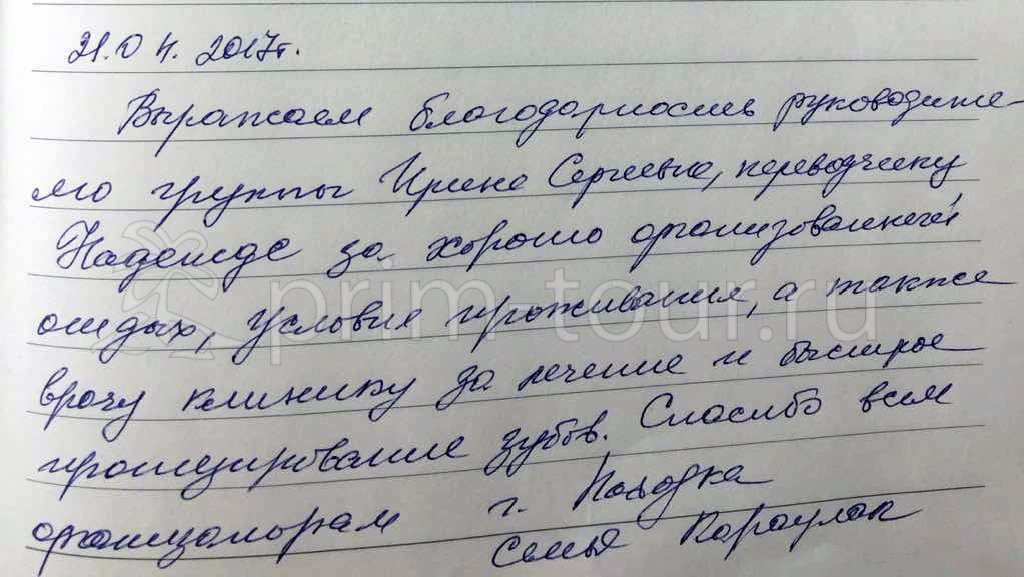 21.04.2017г.
Выражаем благодарность руководите-
лю группы Ирине Сергеевне, переводчику
Надежде за хорошо организованный
отдых, условия проживания, а также
врачу клинику за лечение и быстрое
протезирование зубов. Спасибо всем
организаторам г. Находка
Семья Караулак
prim-tour.ru